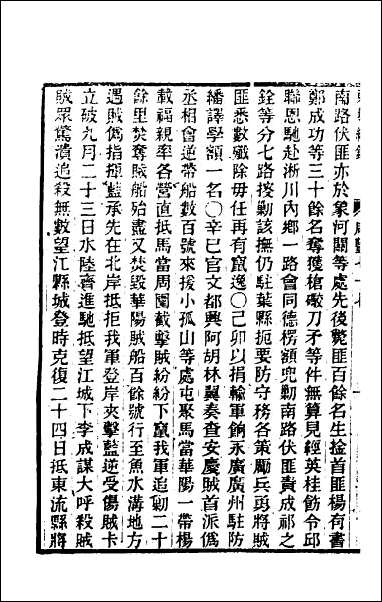 南路伏匪亦於象河關等處先後斃匪百餘名生捡首匪楊有書
鄭成功等三十餘名奪獲槍礮刀矛等件無算見經英桂飭令邱
聯恩馳赴淅川內鄉一路會同德楞額兜勦南路伏匪責成祁之
銓等分七路搜勦該撫仍駐葉縣扼要防守務各策勵兵勇將賊
匪悉數殲除毋任再有竄逸〇己卯以捐輸軍餉永廣廣州駐防
繙譯學額一名〇辛巳官文都興阿胡林翼奏查安慶賊首派僞
丞相會逆帶船數百號來援小孤山等處屯聚馬當華陽一帶楊
載福親率各營直抵馬當周圍截擊賊紛紛下竄我軍追勦二十
餘里焚奪賊船殆盡又焚毀華陽賊船百餘號行至魚水溝地方
遇賊僞指揮藍承先在北岸抵拒我軍登岸夾擊藍逆受傷賊卡
立破九月二十三日水陸齊進馳抵望江城下李成謀大呼殺賊
賊眾驚潰追殺無數望江縣城登時克復二十四日抵東流縣將